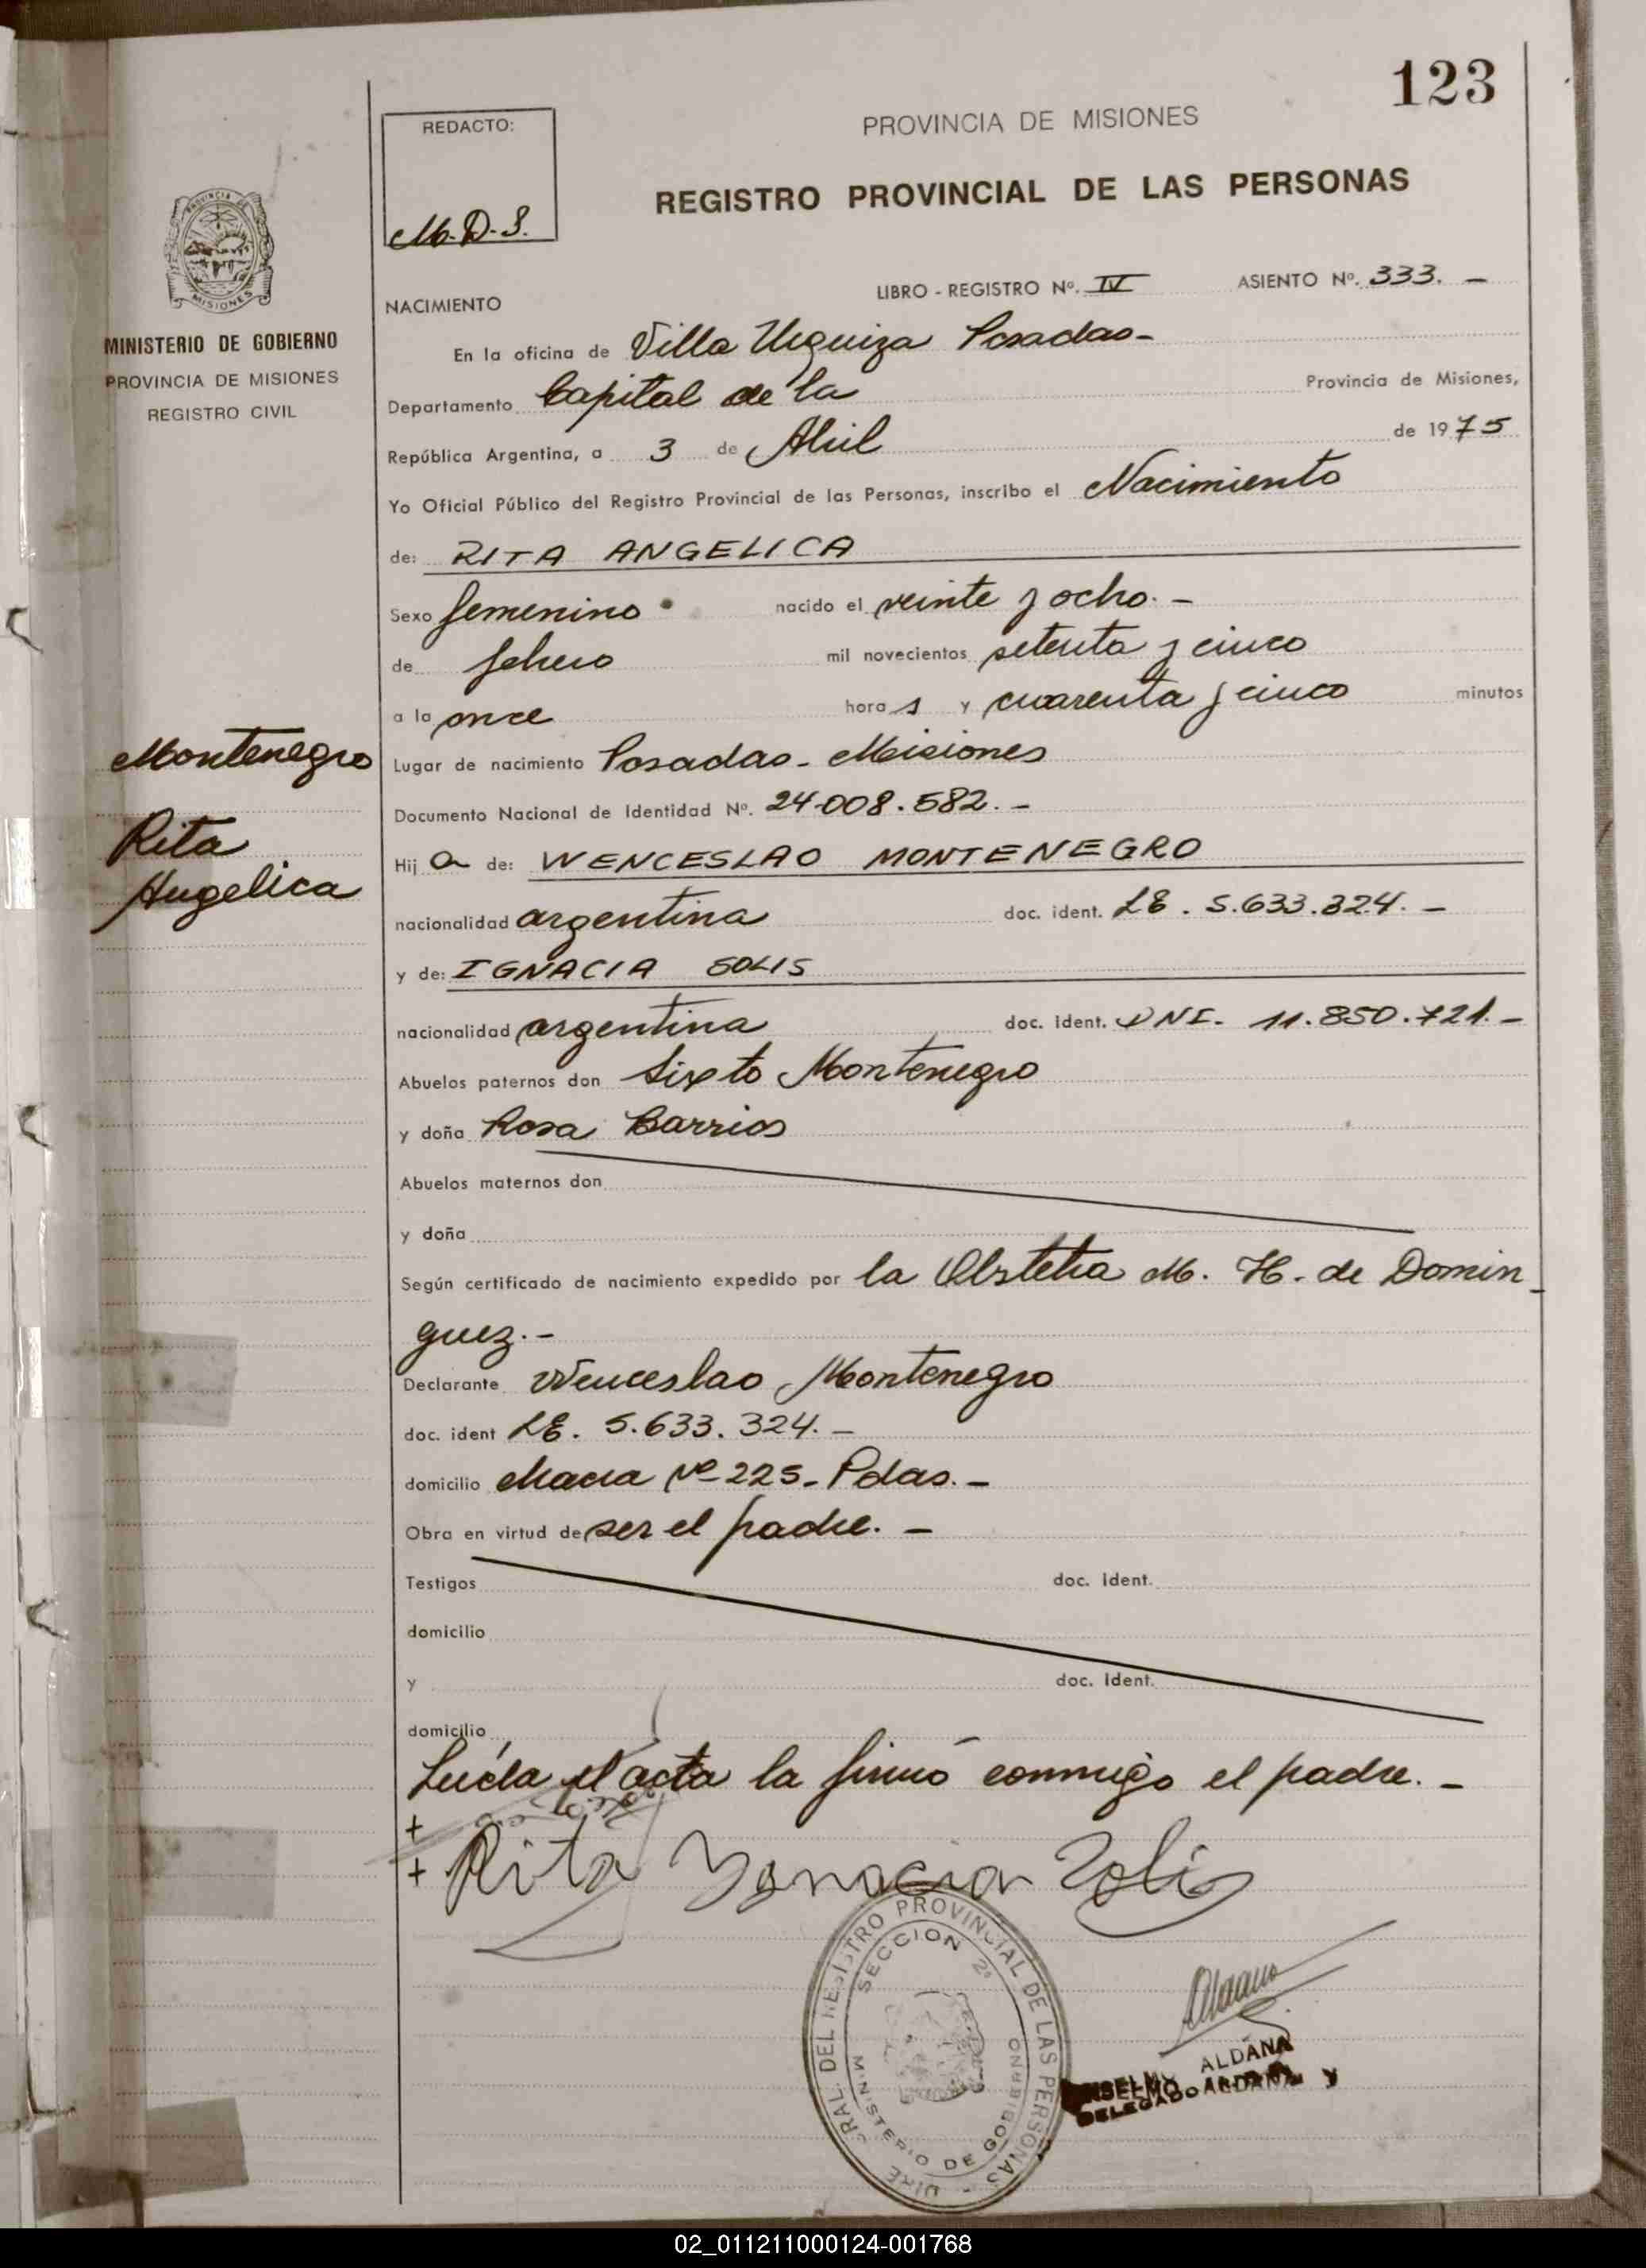 123
REDACTO:
M.D.S.
PROVINCIA DE MISIONES
REGISTRO PROVINCIAL DE LAS PERSONAS
PROVINCIA DE
MISIONES
MINISTERIO DE GOBIERNO
PROVINCIA DE MISIONES
REGISTRO CIVIL
NACIMIENTO
LIBRO - REGISTRO Nº. IV ASIENTO Nº. 333. —
En la oficina de Villa Urquiza Posadas-
Departamento Capital de la Provincia de Misiones,
República Argentina, a 3 de Abril de 1975
Yo Oficial Público del Registro Provincial de las Personas, inscribo el Nacimiento
de: RITA ANGELICA
Sexo femenino nacido el veinte y ocho. -
de febrero mil novecientos setenta y cinco
a la once hora s y cuarenta y cinco minutos
Montenegro
Rita
Angelica
Lugar de nacimiento Posadas - Misiones
Documento Nacional de Identidad Nº. 24.008.582. -
Hij a de: WENCESLAO MONTENEGRO
nacionalidad argentina doc. ident. LE. 5.633.324. -
y de: IGNACIA SOLIS
nacionalidad argentina doc. ident. DNI. 11.850.721. -
Abuelos paternos don Sixto Montenegro
y doña Rosa Barrios
Abuelos maternos don
y doña
Según certificado de nacimiento expedido por la Obstetra M. H. de Domin-
guez. -
Declarante Wenceslao Montenegro
doc. ident LE. 5.633.324. -
domicilio Nº 225 - Pdas. -
Obra en virtud de ser el padre. -
Testigos doc. ident.
domicilio
y doc. ident.
domicilio
Leída el acta la firmó conmigo el padre. -
+
+ Rita Ignacia Solis
REGISTRO PROVINCIAL DE LAS PERSONAS
SECCION 2ª
MINISTERIO DE GOBIERNO
Aldana
ALDANA
ANSELMO ALDANA
DELEGADO
02_011211000124-001768